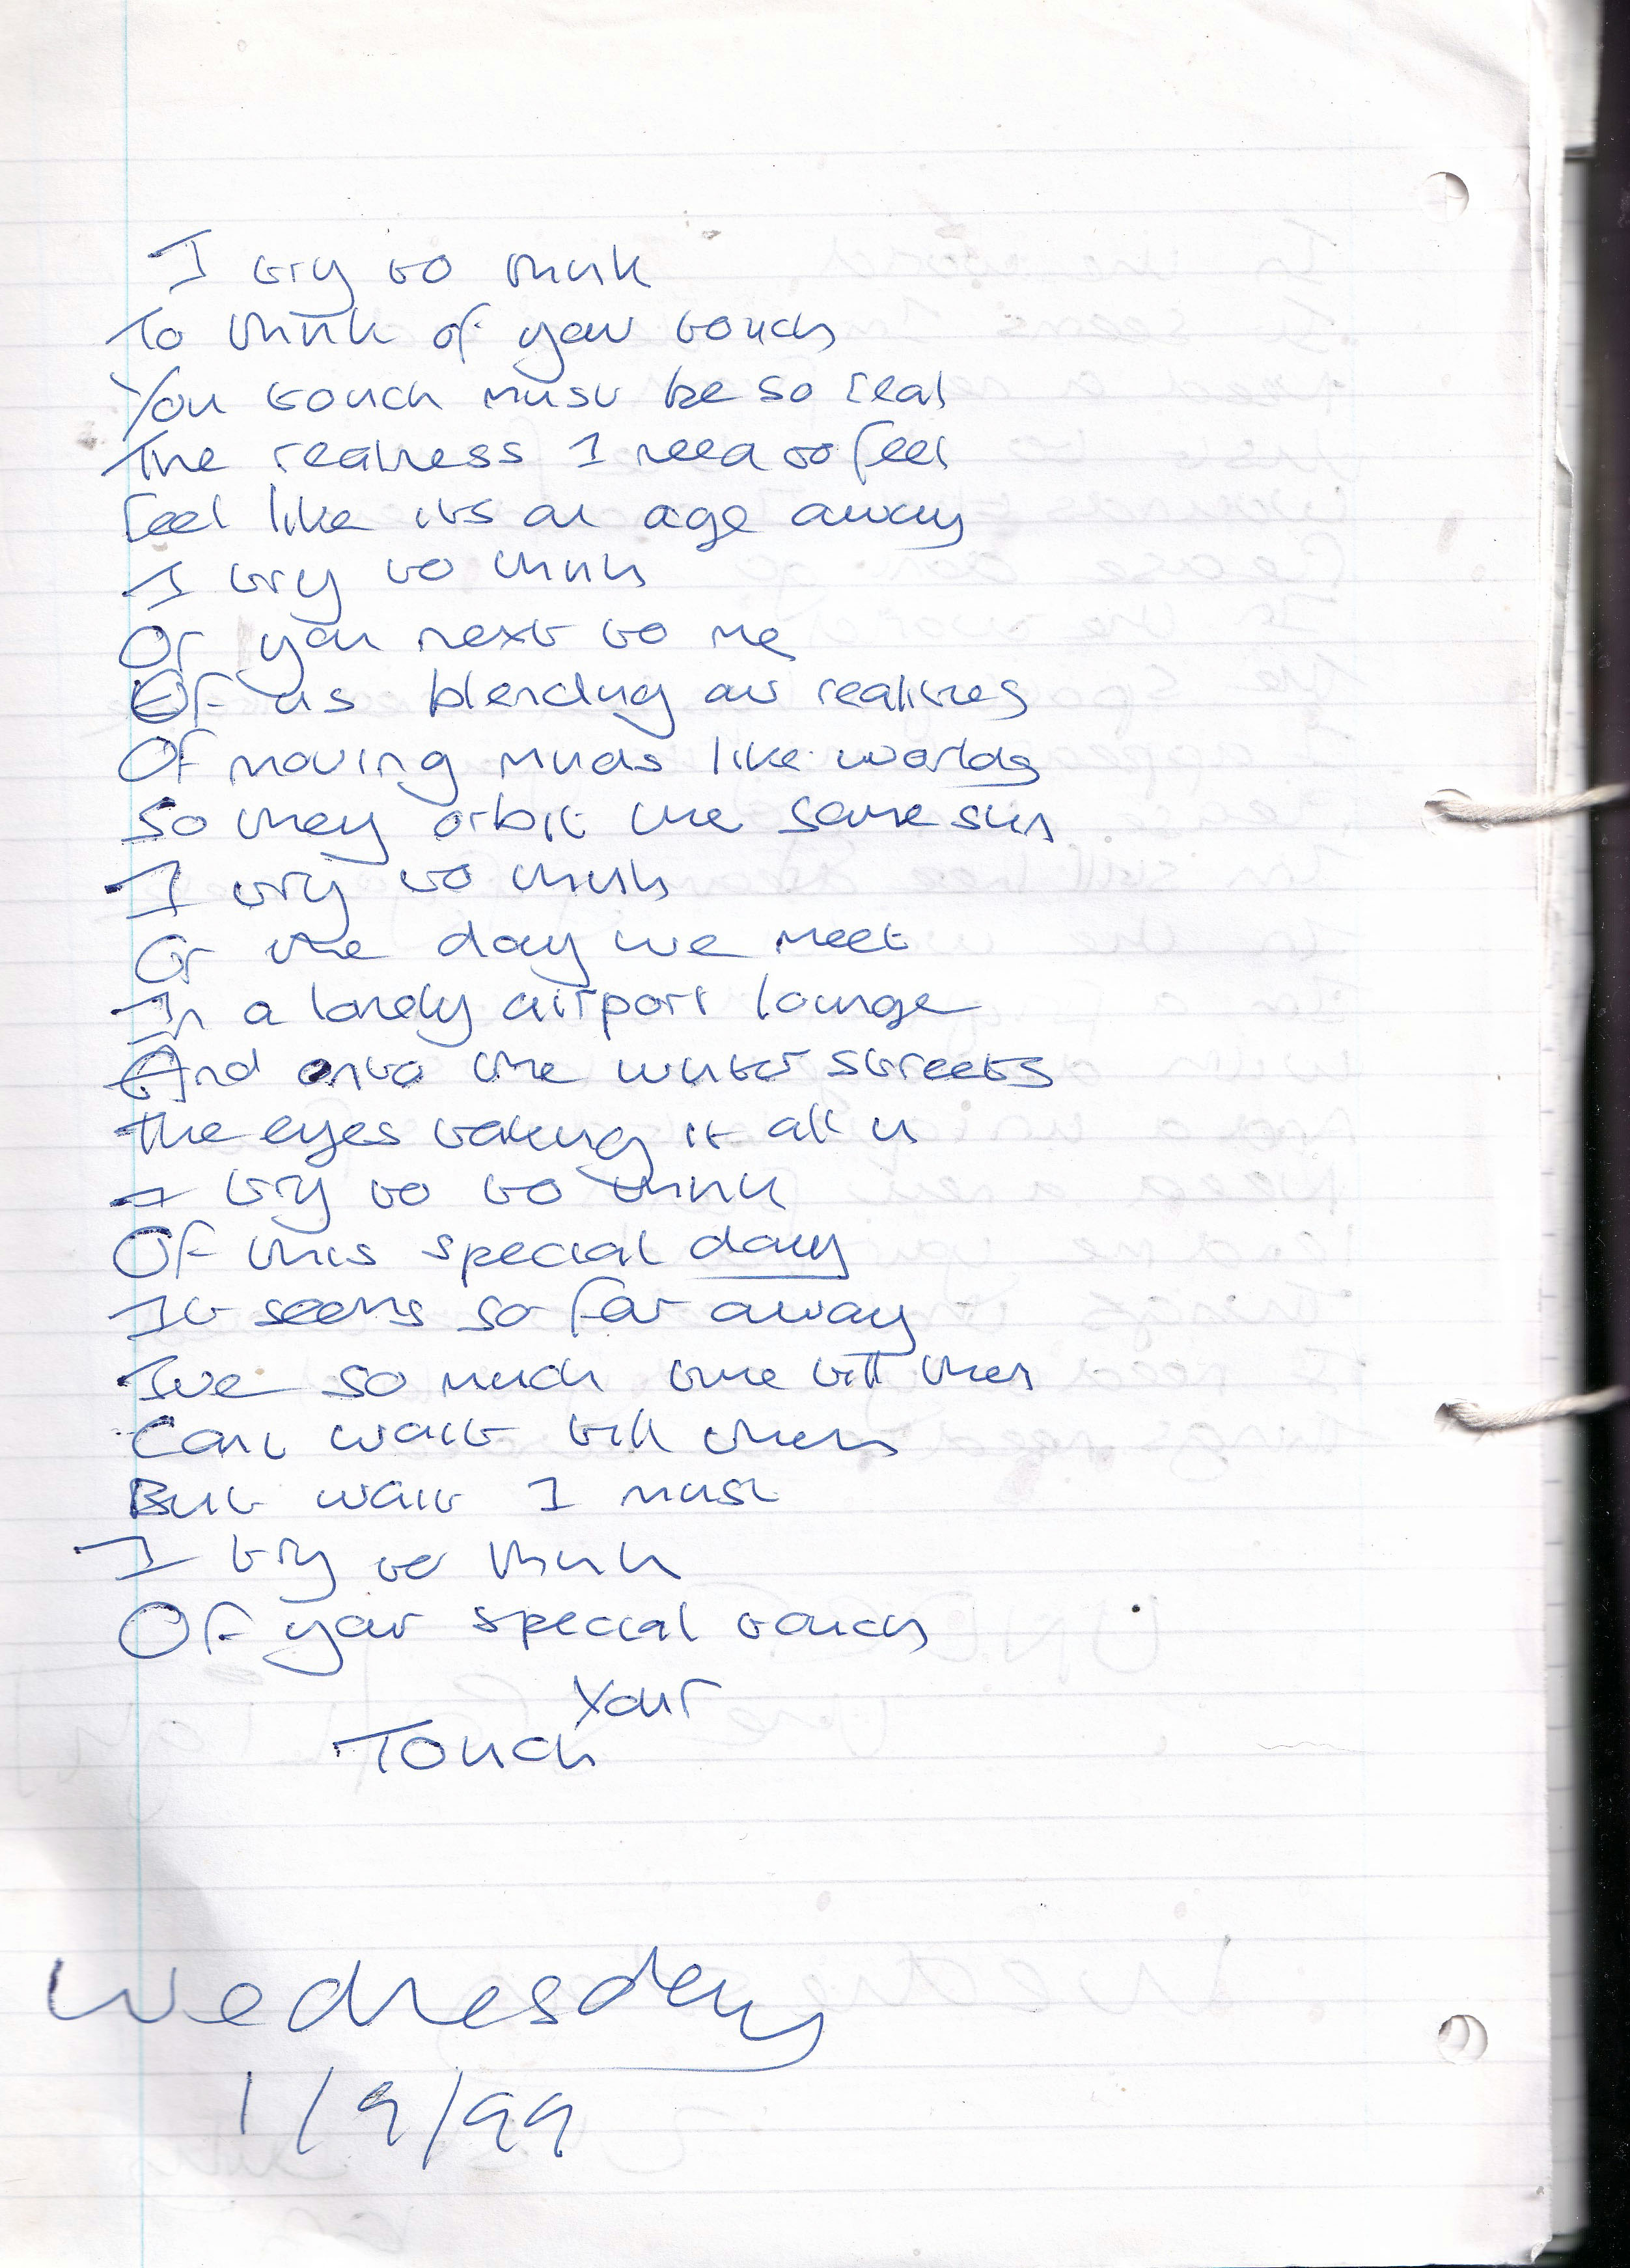 I try to think
To think of your touch
You touch must be so real
The realness I need to feel
Feel like its an age away
I try to think
Of you next to me
Of us blending our realities
Of moving minds like worlds
So they orbit the same sun
I try to think
Of the day we meet
In a lonely airport lounge
And onto the winter streets
The eyes taking it all in
I try to to think
Of this special day
It seems so far away
Ive so much time till then
Cant wait till then
But wait I must
I try to think
Of your special touch
Your
Touch
Wednesday
1/9/99